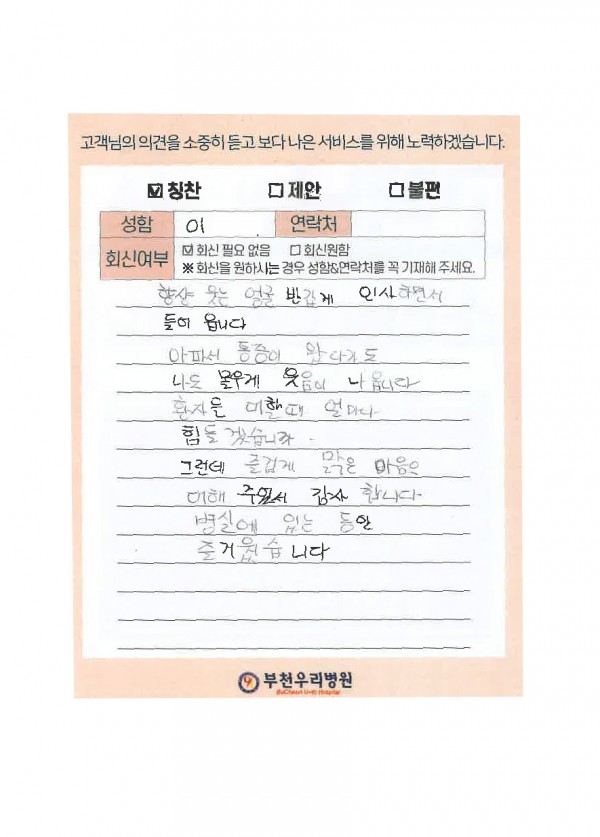 고객님의 의견을 소중히 듣고 보다 나은 서비스를 위해 노력하겠습니다.
☑ 칭찬 ☐ 제안 ☐ 불편
성함 이 연락처
회신여부 ☑ 회신 필요 없음 ☐ 회신원함
※ 회신을 원하시는 경우 성함&연락처를 꼭 기재해 주세요.
항상 웃는 얼굴 반갑게 인사하면서
들어 옵니다
아파서 통증이 왔다가도
나도 모우게 웃음이 나옵니다
환자를 대할때 얼마나
힘들겠습니까
그런데 즐겁게 맑은 마음으
대해 주워서 감사 합니다
병실에 있는 동안
즐거웠습니다
부천우리병원
BuCheon U-Ri Hospital